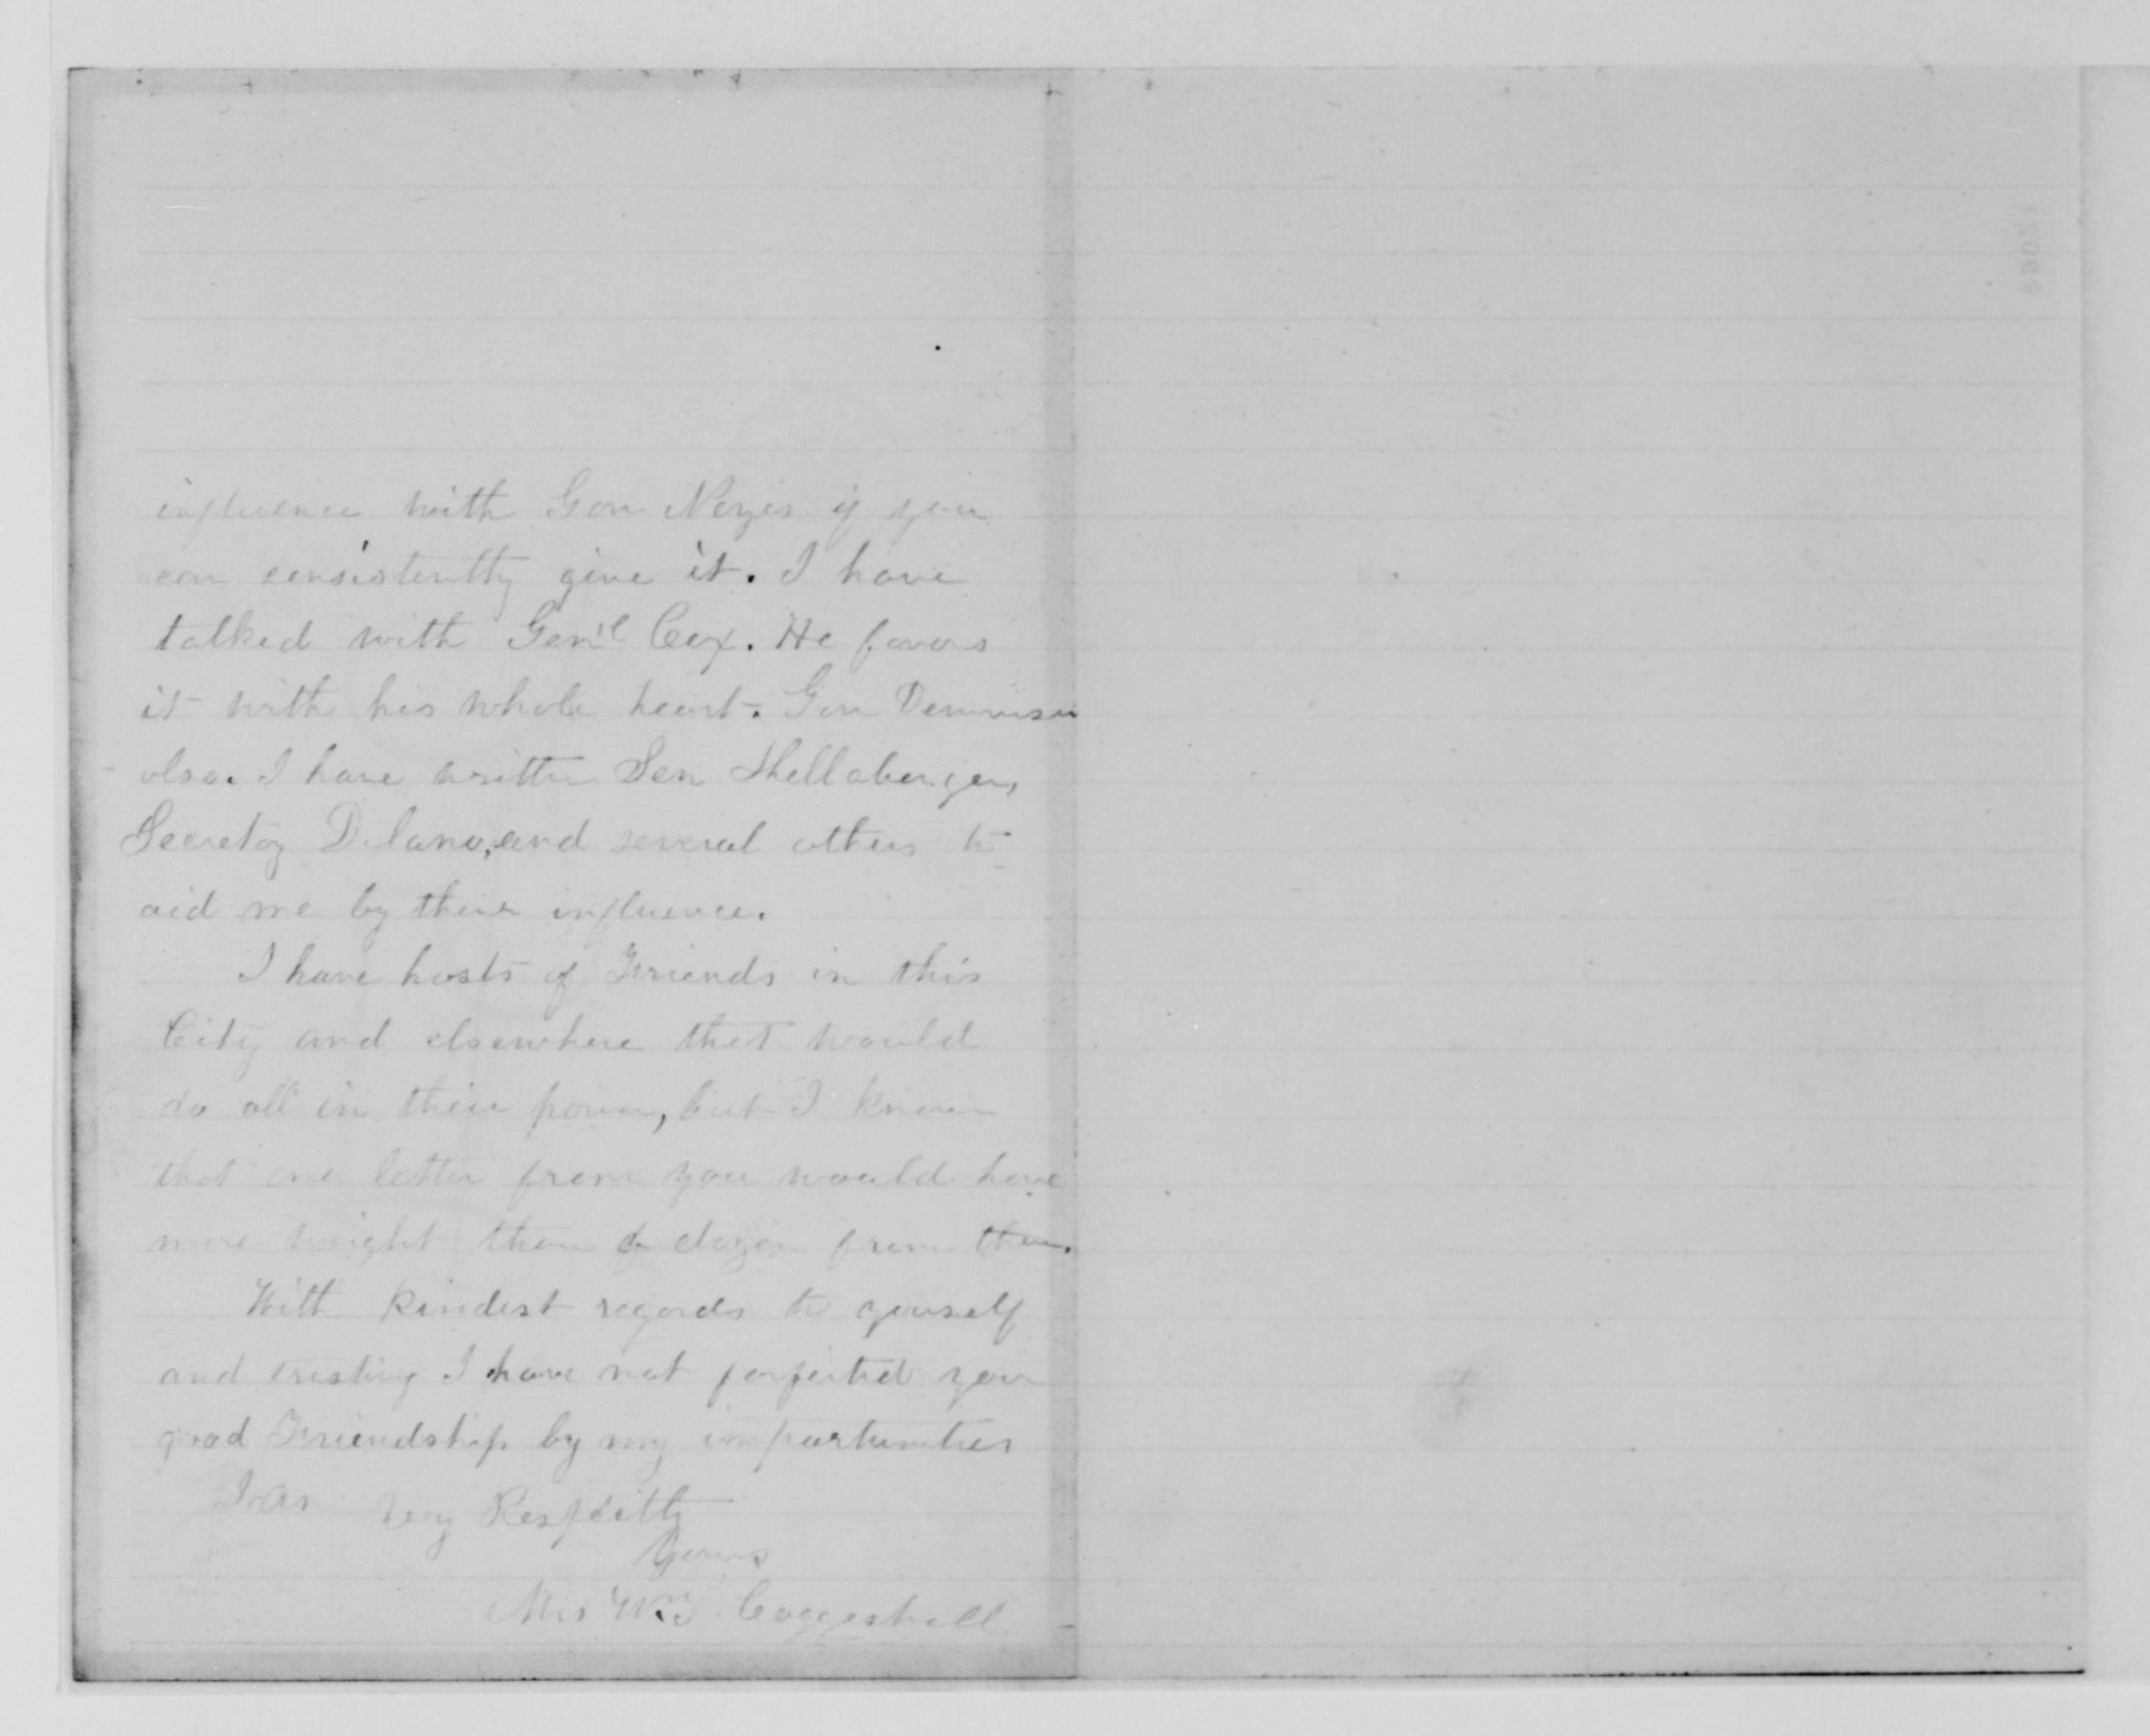 influence with Gov Noyes if you
can consistently give it. I have
talked with Gen'l Cox. He favors
it with his whole heart. Gov Dennison
also. I have written Sen Shellabarger,
Secretay Delano, and several others to
aid me by their influence.
I have hosts of Friends in this
City and elsewhere that would
do all in their power, but I know
that one letter from you would have
more weight than a dozen from them.
With kindest regards to yourself
and trusting I have not forfeited your
good Friendship by my importunities
I am Very Respectfly
Yours
Mrs Wm T. Coggeshall